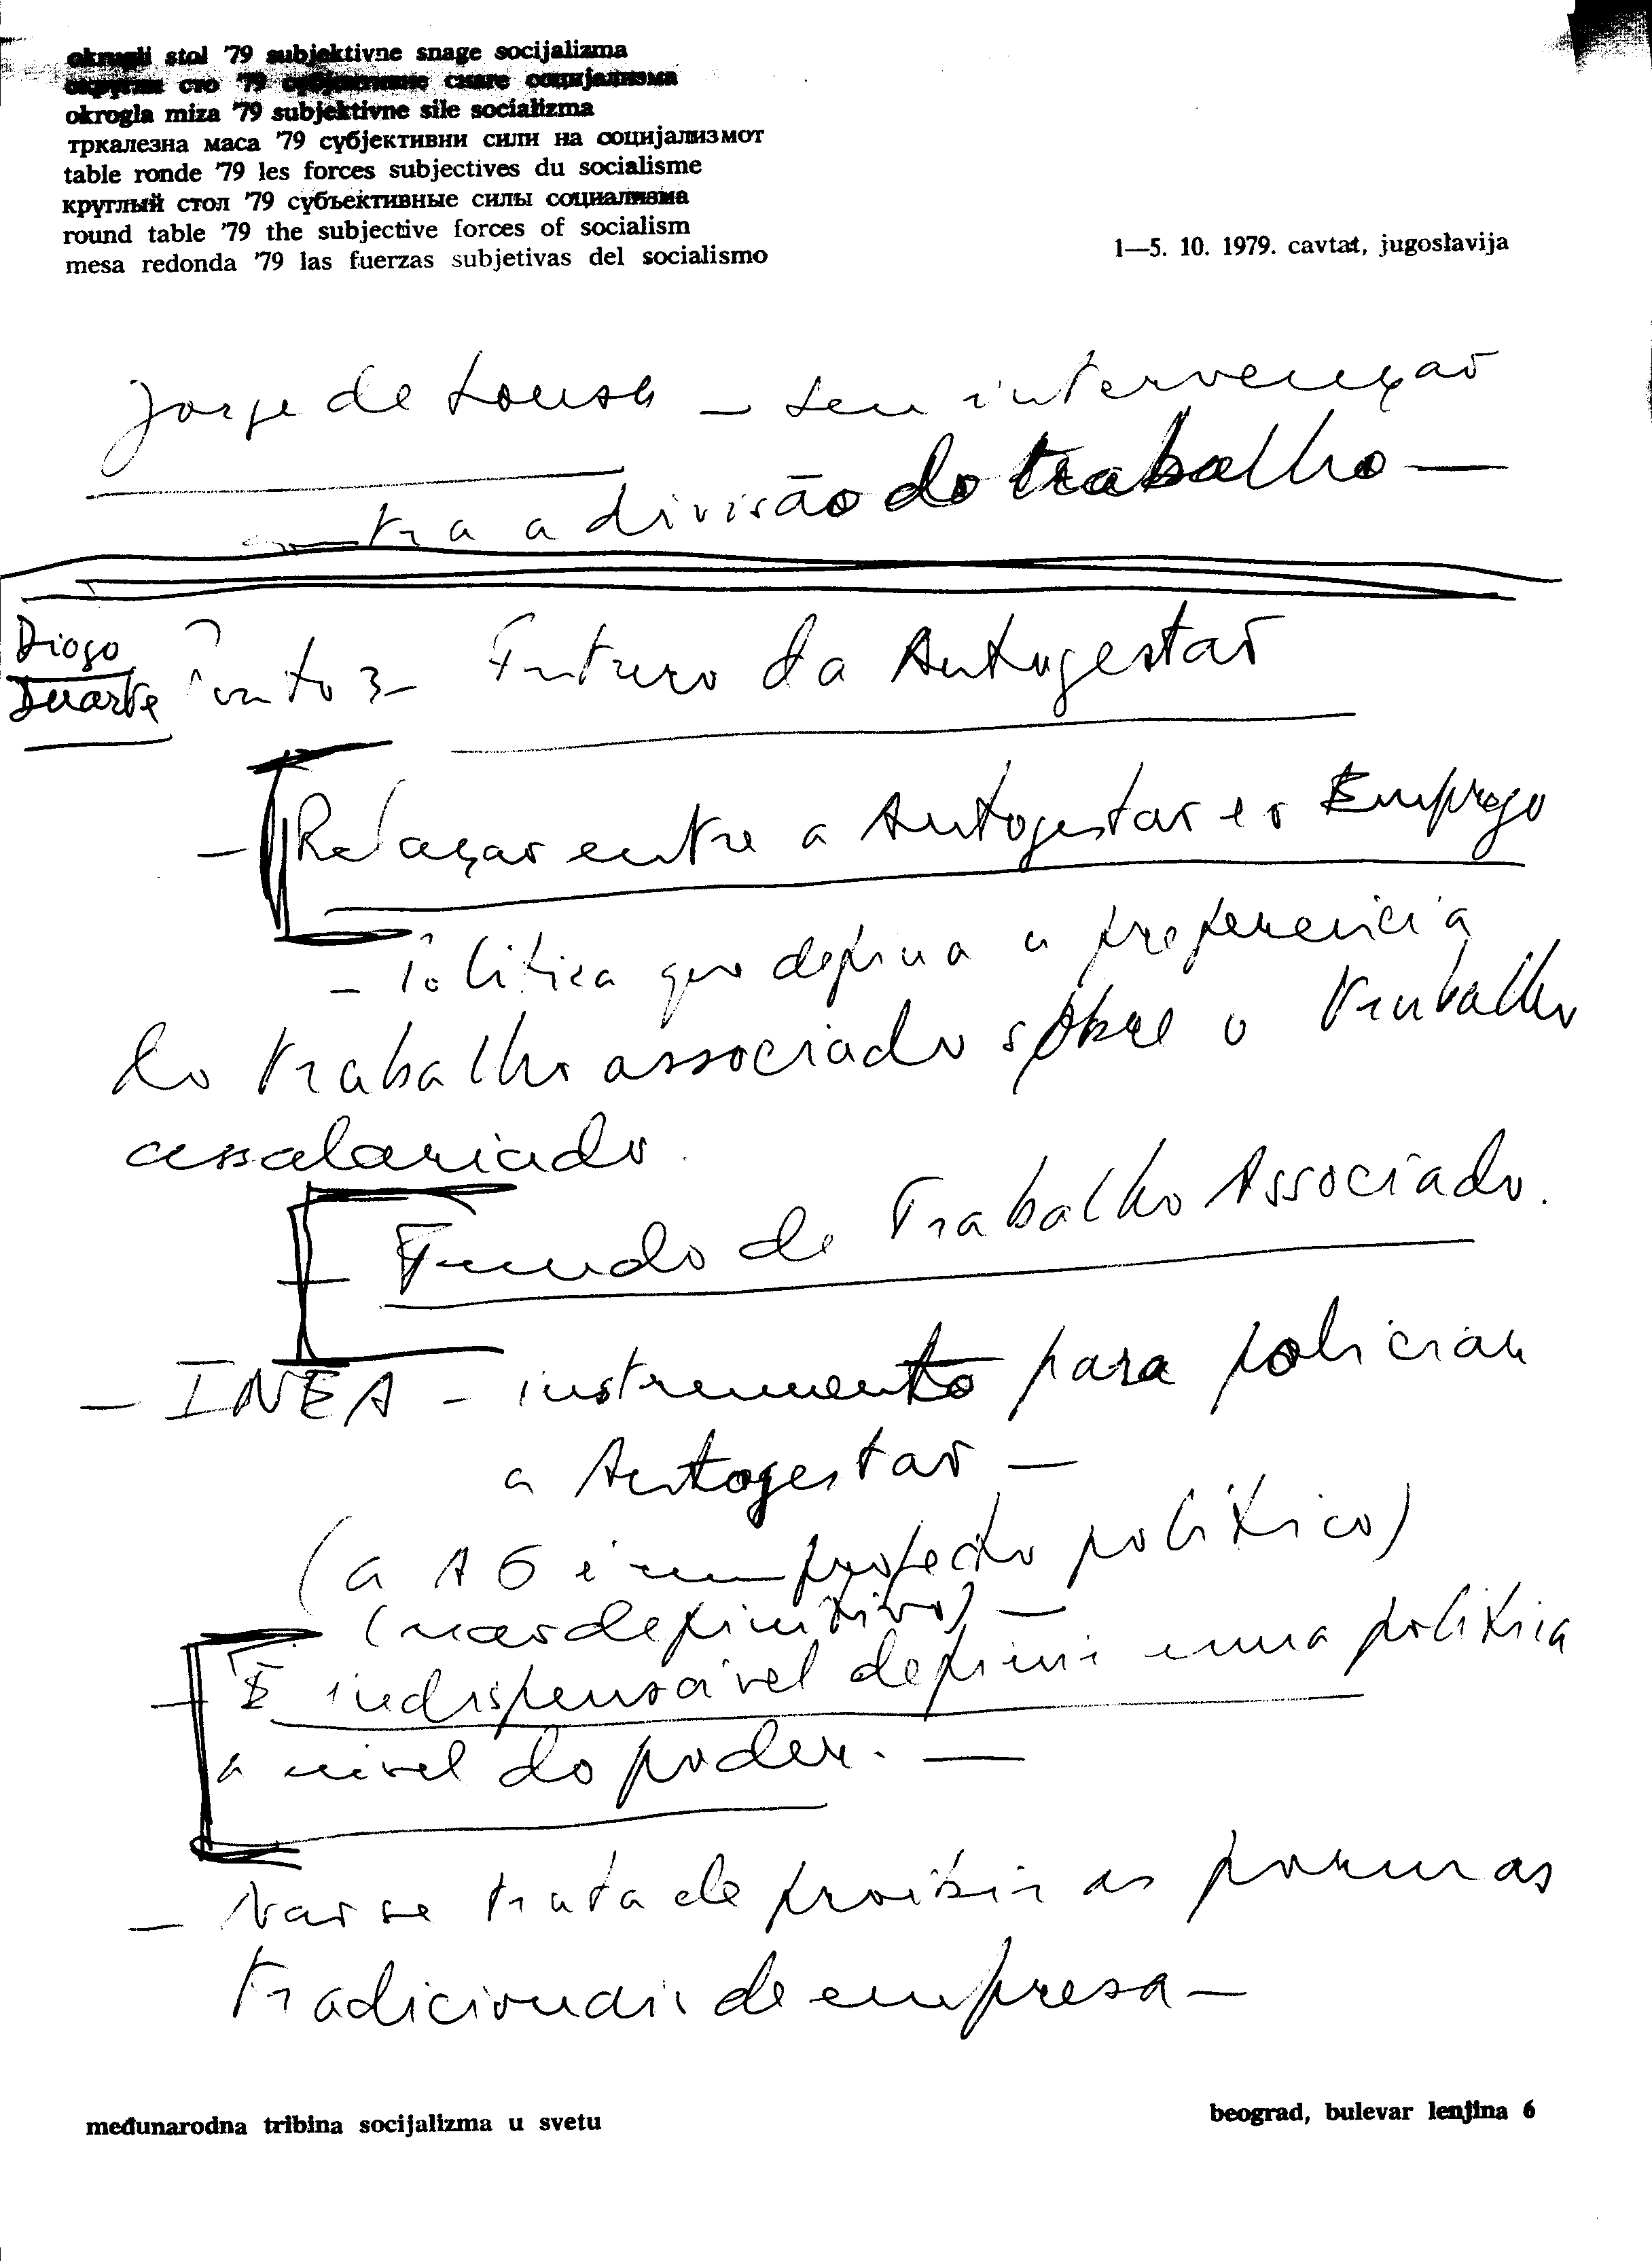 okrugli stol '79 subjektivne snage socijalizma
округли сто '79 субјективне снаге социјализма
okrogla miza '79 subjektivne sile socializma
тркалезна маса '79 субјективни сили на социјализмот
table ronde '79 les forces subjectives du socialisme
круглый стол '79 субъективные силы социализма
round table '79 the subjective forces of socialism
mesa redonda '79 las fuerzas subjetivas del socialismo
1—5. 10. 1979. cavtat, jugoslavija
Jorge de Sousa — seu intervençaõ
contra a divisão do trabalho —
Diogo
Duarte
Ponto 3 - Futuro da Autogestaõ
- Relaçaõ entre a Autogestaõ e o Emprego
- Política que defina a preferencia
do trabalho associado sobre o trabalho
assalariado.
- Fundo de Trabalho Associado.
- INEA - instrumento para policiar
a Autogestaõ —
(a AG é um projecto político)
(nao definitivo) —
- É indispensável definir uma política
a nivel do poder. —
- Naõ se trata de proibir as formas
tradicionais de empresa —
međunarodna tribina socijalizma u svetu
beograd, bulevar lenjina 6